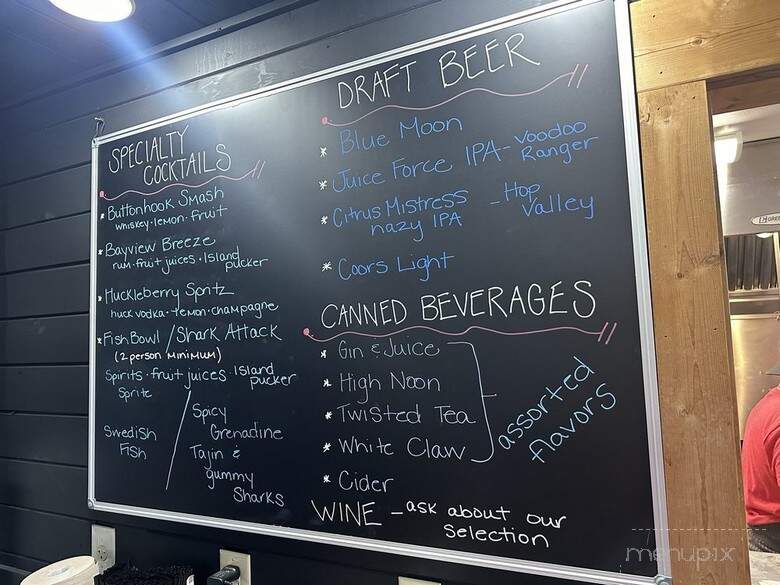 SPECIALTY
COCKTAILS
* Buttonhook Smash
whiskey · lemon · fruit
* Bayview Breeze
rum · fruit juices · Island
pucker
* Huckleberry Spritz
huck vodka · lemon · champagne
* Fish Bowl / Shark Attack
(2 person MINIMUM)
Spirits · fruit juices · Island
pucker
Sprite
Swedish
Fish
Spicy
Grenadine
Tajin &
gummy
Sharks
DRAFT BEER
* Blue Moon
* Juice Force IPA - Voodoo
Ranger
* Citrus Mistress - Hop
nazy IPA Valley
* Coors Light
CANNED BEVERAGES
* Gin & Juice
* High Noon
* Twisted Tea
* White Claw
assorted
flavors
* Cider
WINE - ask about our
selection
menupix